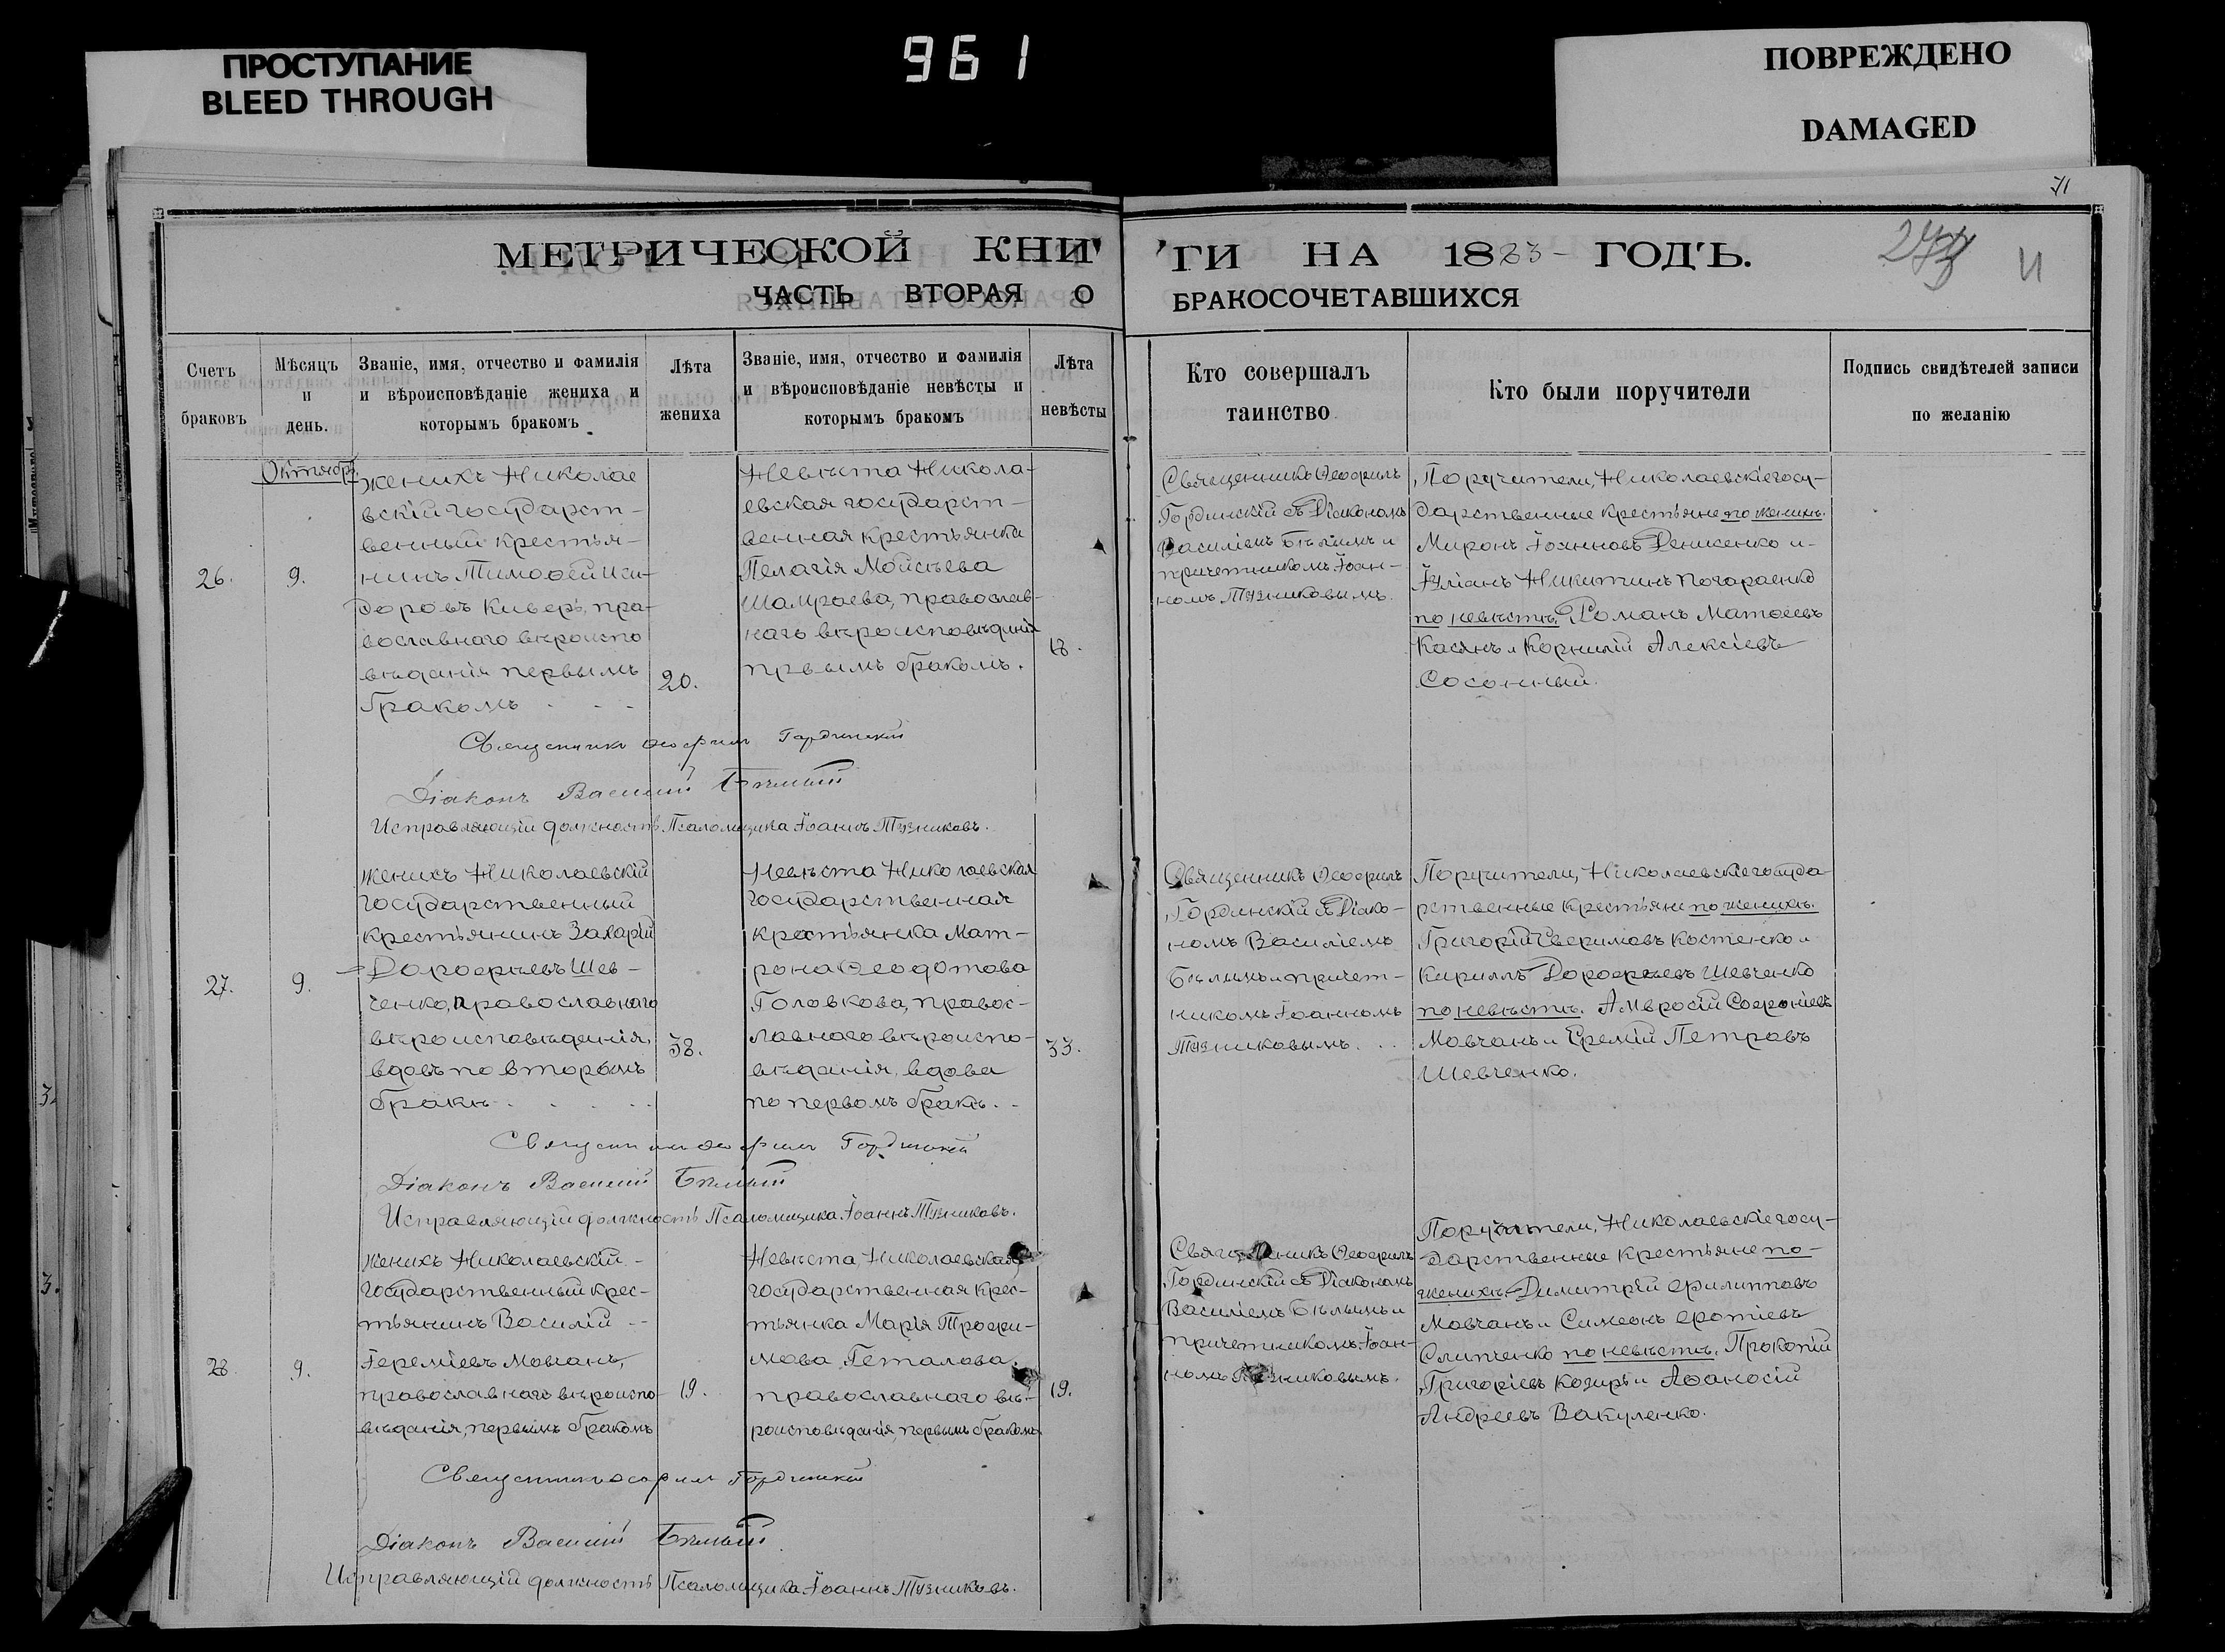 ПРОСТУПАНИЕ
BLEED THROUGH
961
ПОВРЕЖДЕНО
DAMAGED
71
МЕТРИЧЕСКОЙ КНИ
ГИ НА 1883 ГОДЪ.
ЧАСТЬ ВТОРАЯ О
БРАКОСОЧЕТАВШИХСЯ
Счетъ
браковъ
Мѣсяцъ
и
день.
Званіе, имя, отчество и фамилія
и вѣроисповѣданіе жениха и
которымъ бракомъ
Лѣта
жениха
Званіе, имя, отчество и фамилія
и вѣроисповѣданіе невѣсты и
которымъ бракомъ
Лѣта
невѣсты
Кто совершалъ
таинство
Кто были поручители
Подпись свидѣтелей записи
по желанію
Октябрь
26.
9.
Женихъ Николае
вскій государст-
венный крестья-
нинъ Тимофей Иси-
доровъ Киверъ, пра-
вославнаго вѣроиспо
вѣданія первымъ
бракомъ
20.
Невѣста Никола-
евская государст-
венная крестьянка
Пелагія Мойсѣева
Шамраева, православ-
наго вѣроисповѣданія
првымъ бракомъ.
18.
Священникъ Ѳеофилъ
Гординскій съ Діакономъ
Василіемъ Бѣлымъ и
причетникомъ Іоан-
номъ Тузниковымъ.
Поручители, Николаевскіе госу-
дарственные крестьяне по женихѣ.
Миронъ Іоанновъ Денисенко и-
Іуліанъ Никитинъ Погараенко
по невѣстѣ, Романъ Матѳеевъ
Касянъ и Корнилій Алексіевъ
Сосонный.
Священникъ Ѳеофилъ Гординскій
Діаконъ Василій Бѣлый
Исправляющій должность Псаломщика Іоаннъ Тузниковъ.
27.
9.
Женихъ Николаевскій
государственный
крестьянинъ Захарій
Дорофѣевъ Шев-
ченко, православнаго
вѣроисповѣданія,
вдовъ по второмъ
бракѣ
38.
Невѣста Николаевская
государственная
крестьянка Мат-
рона Ѳеодотова
Головкова, правос-
лавнаго вѣроиспо-
вѣданія, вдова
по первомъ бракѣ.
33.
Священникъ Ѳеофилъ
Гординскій съ Діако-
номъ Василіемъ
Бѣлымъ и причет-
никомъ Іоанномъ
Тузниковымъ.
Поручители, Николаевскіе госуда-
рственные крестьяне по женихѣ.
Григорій Сверимовъ Костенко и
Кириллъ Дорофѣевъ Шевченко
по невѣстѣ. Амвросій Софроніевъ
Мовчанъ и Еремій Петровъ
Шевченко.
Священникъ Ѳеофилъ Гординскій
Діаконъ Василій Бѣлый
Исправляющій должность Псаломщика Іоаннъ Тузниковъ.
28
9.
Женихъ Николаевскій
государственный крес-
тьянинъ Василій
Іереміевъ Мовчанъ,
православнаго вѣроиспо-
вѣданія, первымъ бракомъ
19.
Невѣста Николаевская
государственная крес-
тьянка Марія Трофи-
мова Геталова
православнаго вѣ-
роисповѣданія, первымъ бракомъ
19.
Священникъ Ѳеофилъ
Гординскій съ Діакономъ
Василіемъ Бѣлымъ и
причетникомъ Іоан-
номъ Тузниковымъ.
Поручители, Николаевскіе госу-
дарственные крестьяне по-
женихѣ. Димитрій Филипповъ
Мовчанъ и Симеонъ Фотіевъ
Слипченко по невѣстѣ. Прокопій
Григоріевъ Козиръ и Аѳанасій
Андреевъ Вакуленко.
Священникъ Ѳеофилъ Гординскій
Діаконъ Василій Бѣлый
Исправляющій должность Псаломщика Іоаннъ Тузниковъ.